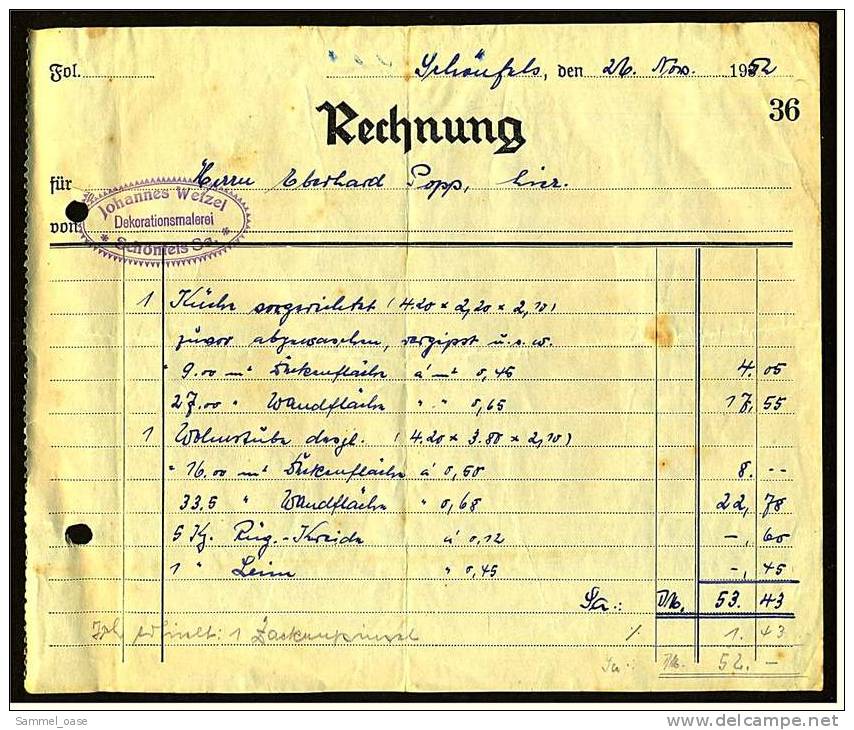 Fol. Schönfels, den 26. Nov. 1952
36
Rechnung
für Herrn Eberhard Popp, hier.
von
Johannes Wetzel
Dekorationsmalerei
* Schönfels Sa. *
1 Küche vorgerichtet (4.20 x 2,20 x 2,10)
zuvor abgewaschen, vergipst u.s.w.
" 9.00 m² Deckenfläche á m² 0,45 4. 05
27.00 " Wandfläche " " 0,65 17, 55
1 Wohnstube desgl. (4.20 x 3.80 x 2,10)
" 16.00 m² Deckenfläche á 0,50 8. --
33.5 " Wandfläche " 0,68 22, 78
5 Kg. Rüg.-Kreide á 0,12 -, 60
1 " Leim " 0,45 -, 45
Sa: DM, 53. 43
erhielt: 1 Zackenpinsel % 1. 43
Sa: DM. 52. -
Sammel_oase
www.delcampe.net